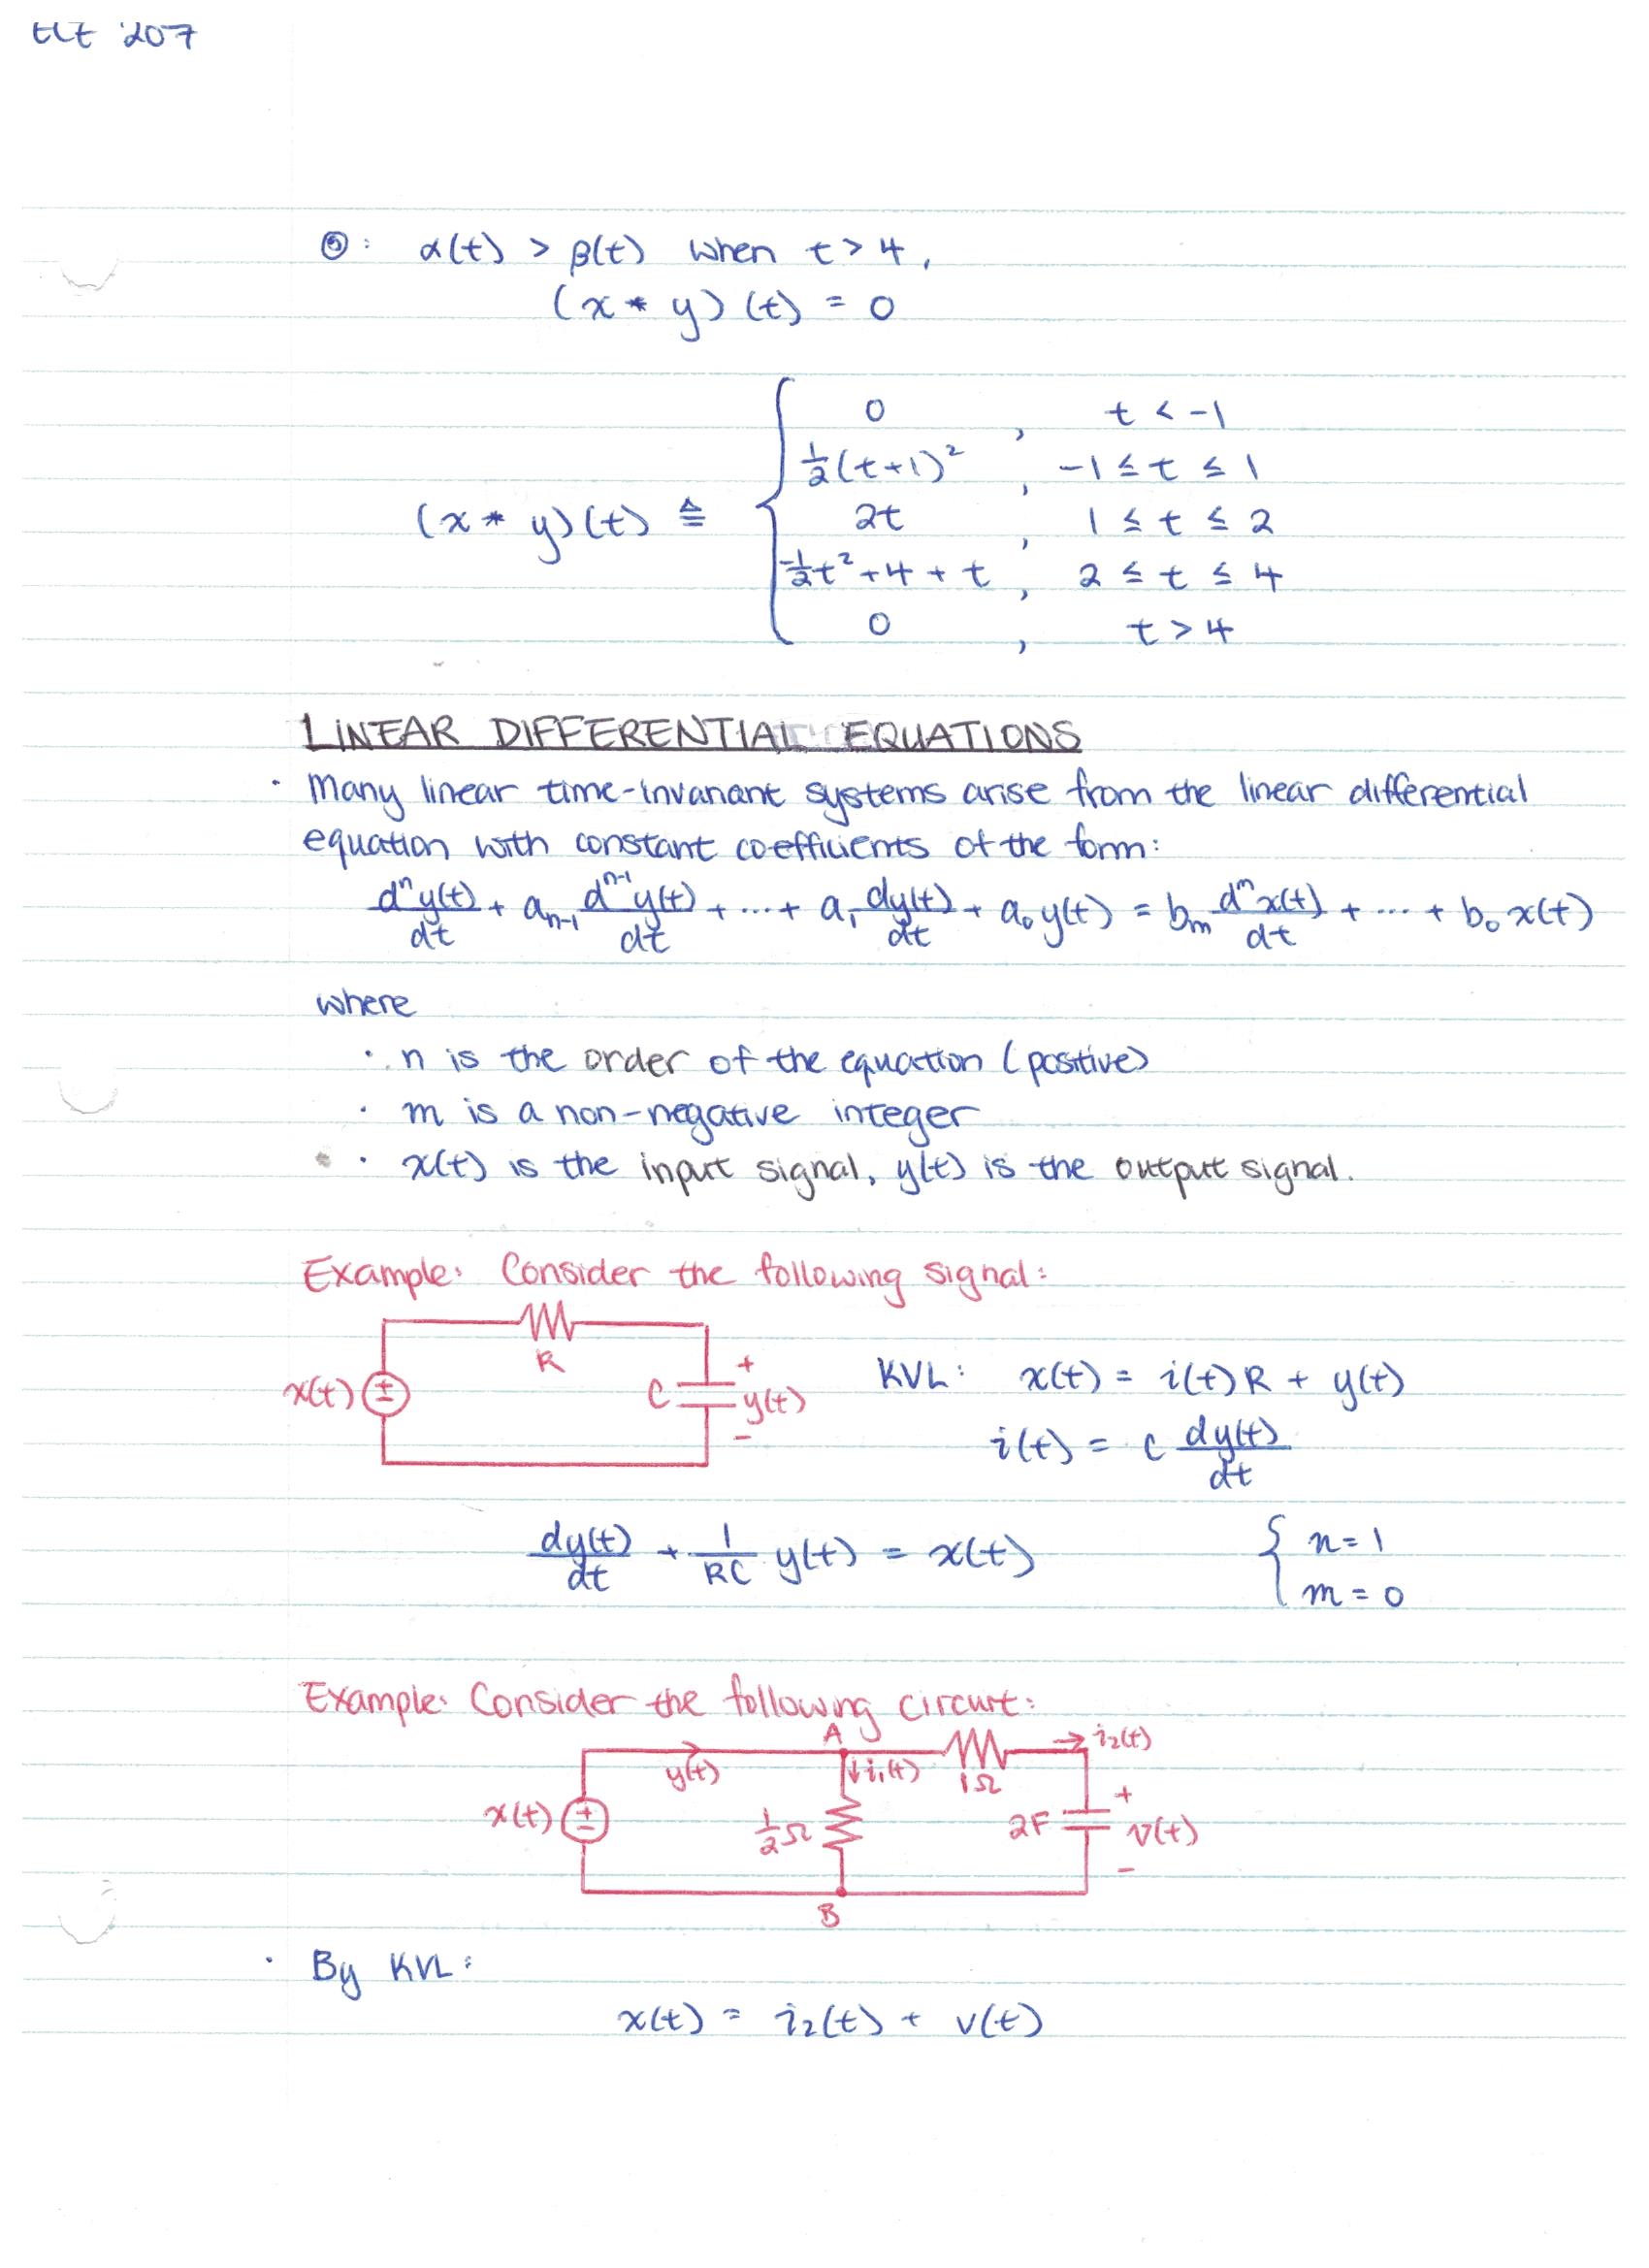 ECE 207
⑤: α(t) > β(t) when t > 4,
(x * y)(t) = 0
0 , t < -1
½(t+1)² , -1 ≤ t ≤ 1
(x * y)(t) ≙ { 2t , 1 ≤ t ≤ 2
-½t² + 4 + t , 2 ≤ t ≤ 4
0 , t > 4
LINEAR DIFFERENTIAL EQUATIONS
· Many linear time-invariant systems arise from the linear differential
equation with constant coefficients of the form:
dⁿy(t)/dt + aₙ₋₁ dⁿ⁻¹y(t)/dt + ... + a₁ dy(t)/dt + a₀ y(t) = bₘ dᵐx(t)/dt + ... + b₀ x(t)
where
· n is the order of the equation (positive)
· m is a non-negative integer
· x(t) is the input signal, y(t) is the output signal.
Example: Consider the following signal:
R
x(t) ± C + y(t) -
KVL: x(t) = i(t)R + y(t)
i(t) = C dy(t)/dt
dy(t)/dt + 1/RC y(t) = x(t) { n = 1
m = 0
Example: Consider the following circuit:
A i₂(t)
y(t) i₁(t) 1Ω
x(t) ± ½Ω 2F + v(t) -
B
· By KVL:
x(t) = i₂(t) + v(t)